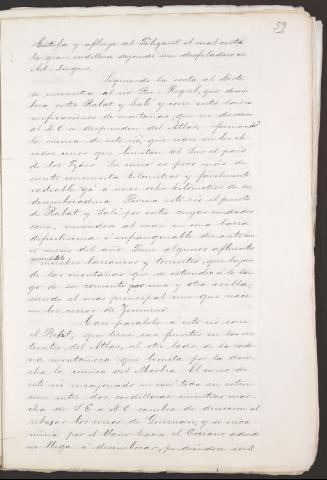 59
Entifa y afluye al Tahgaut el cual corta
la gran cordillera dejando un desfiladero
Siguiendo la costa al Norte
se encuentra al rio Bu-Regrel, que desem
boca entre Rabat y Salé y corre entre las ra
mificaciones de montañas, que en direccion
al N.O se desprenden del Atlas, formando
la cuenca de este rio, que nace en los ele
vados cerros que limitan al Sur el pais
de los Su curso es poco más de
ciento cincuenta kilometros y facilmente
vadeable ya á unos ocho kilometros de su
desembocadura. Forma este rio el puerto
de Rabat y Salé por entre cuyas ciudades
corre, uniendose al mar en una barra
dificilisima é impracticable durante seis
ó meses del año. Tiene algunos afluentes
muchos barrancos y torrentes, que bajan
de las montañas que se estienden á lo lar
go de su corriente por una y otra orilla,
siendo el mas principal uno que nace
en los cerros de
Casi paralelo á este rio corre
el Behet, que tiene sus fuentes en las ver
tientes del Atlas, al otro lado de la cade
na montañosa que limita por la dere
cha la cuenca del Morbea. El cauce de
este rio encajonado en casi toda su esten
sion entre dos cordilleras mientras mar
cha de S.E á N.O cambia de direccion al
rebasar los cerros de Gueruan, y se enca
mina por el llano hacia el Occeano adonde
no llega á desembocar, perdiendose sus